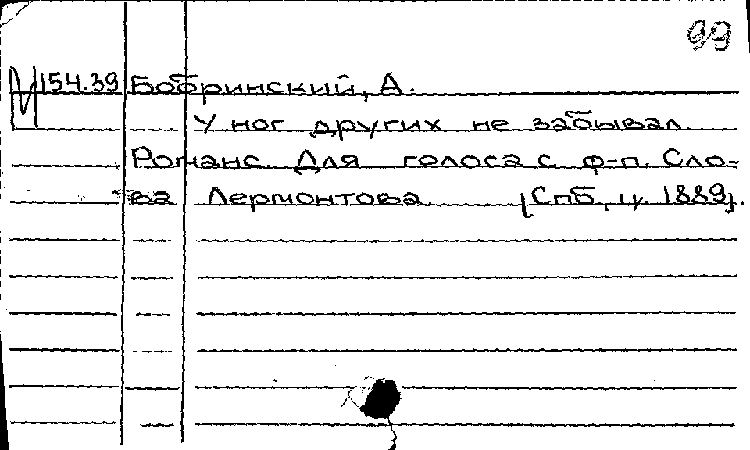 99
М 154.39 Бобринский, А.
У ног других не забывал.
Романс. Для голоса с ф-п. Сло-
ва Лермонтова [Спб., ц. 1889].